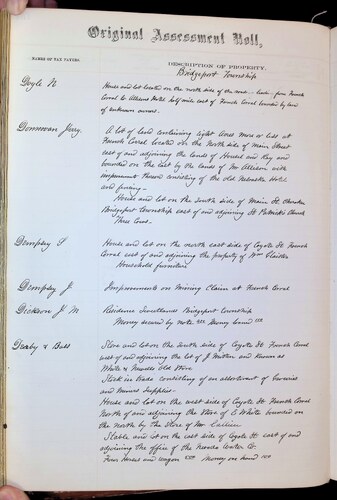 Original Assessment Roll,
NAMES OF TAX PAYERS.
DESCRIPTION OF PROPERTY.
Bridgeport Township
Doyle N
House and lot located on the north side of the road from French
Corral to Allisons Hotel half mile east of French Corral bounded by land
of unknown owners.
Donnovan Jerry
A lot of land containing eight acres more or less at
French Corral located on the North side of Main Street
east of and adjoining the lands of and Kay and
bounded on the East by the lands of Mr Allison with
improvements Thereon consisting of the old Nebraska Hotel
and fencing
House and lot on the South side of Main St Cherokee
Bridgeport Township east of and adjoining St Patricks Church
Three Cows
Dempsey S
House and lot on the north east side of Coyote St French
Corral east of and adjoining the property of Wm
Household furniture
Dempsey J.
Improvements on Mining Claim at French Corral
Dickson J M
Residence Sweetland Bridgeport Township
Money secured by note Money loaned
& Ball
Store and lot on the South side of Coyote St French Corral
west of and adjoining the lot of J and Known as
White & Old Store
Stock in trade consisting of an assortment of Groceries
and Miners Supplies
House and lot on the west side of Coyote St French Corral
North of and adjoining the Store of E White bounded on
the north by the Store of Wm
Stable and lot on the east side of Coyote St east of and
adjoining the office of the Nevada Water Co.
Four Horses and wagon Money on hand